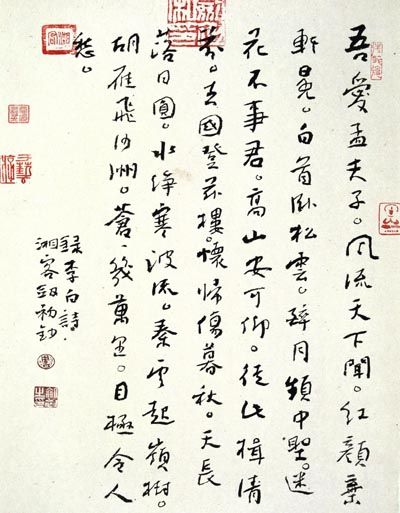 吾愛孟夫子。风流天下聞。红顏棄
軒冕。白首卧松雲。醉月頻中聖。迷
花不事君。高山安可仰。徒此揖清
芬。去國登茲樓。懷歸傷暮秋。天長
落日圓。水淨寒波流。秦雲起嶺樹。
胡雁飛沙洲。蒼、幾萬里。目極令人
愁。
録李白詩.
湘客